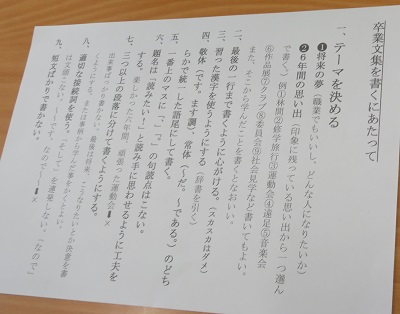 卒業文集を書くにあたって
一、テーマを決める
❶将来の夢（職業でもいいし、どんな人になりたいか）
❷６年間の思い出（印象に残っている思い出から一つ選ん
で書く）例①林間②修学旅行③運動会④遠足⑤音楽会
⑥作品展⑦クラブ⑧委員会⑨社会見学など書いてもよい。
また、そこから学んだことを書くとなおいい。
二、最後の一行まで書くように心がける。（スカスカはダメ）
三、習った漢字を使うようにする（辞書を引く）
四、敬体（です。ます調）、常体（～だ。～である。）のどち
らかで統一した語尾にして書く。
五、一番上のマスに「、」「。」の句読点はこない。
六、題名は「読みたい！」と読み手に思わせるように工夫を
する。楽しかった六年間、頑張った運動会
七、三つ以上の段落に分けて書くようにする。
出来事ばかりが書かない。最後は将来、こうなりたいとか決意を書
くようにする。または事柄から学んだ事をかくとよい。
八、適切な接続詞を使う。
は文頭にこない。～です。なので～～
九、短文ばかりで書かない。